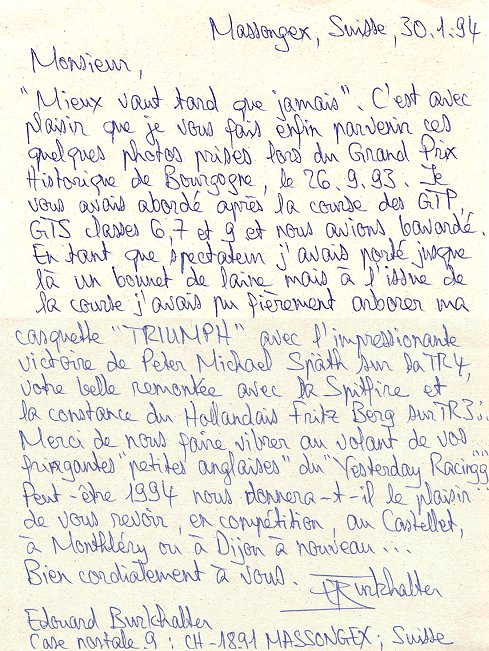 Massongex, Suisse, 30.1.94
Monsieur,
"Mieux vaut tard que jamais". C'est avec
plaisir que je vous fais enfin parvenir ces
quelques photos prises lors du Grand Prix
Historique de Bourgogne, le 26.9.93. Je
vous avais abordé après la course des GTP,
GTS classes 6,7 et 9 et nous avions bavardé.
En tant que spectateur j'avais porté jusque
là un bonnet de laine mais à l'issue de
la course j'avais pu fièrement arborer ma
casquette "TRIUMPH" avec l'impressionante
victoire de Peter Michael Späth sur sa TR4,
votre belle remontée avec la Spitfire et
la constance du Hollandais Fritz Berg sur TR3...
Merci de nous faire vibrer au volant de vos
fringantes "petites anglaises" du "Yesterday Racing"
Peut-être 1994 nous donnera-t-il le plaisir
de vous revoir, en compétition, au Castellet,
à Montlhéry ou à Dijon à nouveau...
Bien cordialement à vous. EBurkhalter
Edouard Burkhalter
Case postale 9 ; CH-1891 MASSONGEX ; Suisse